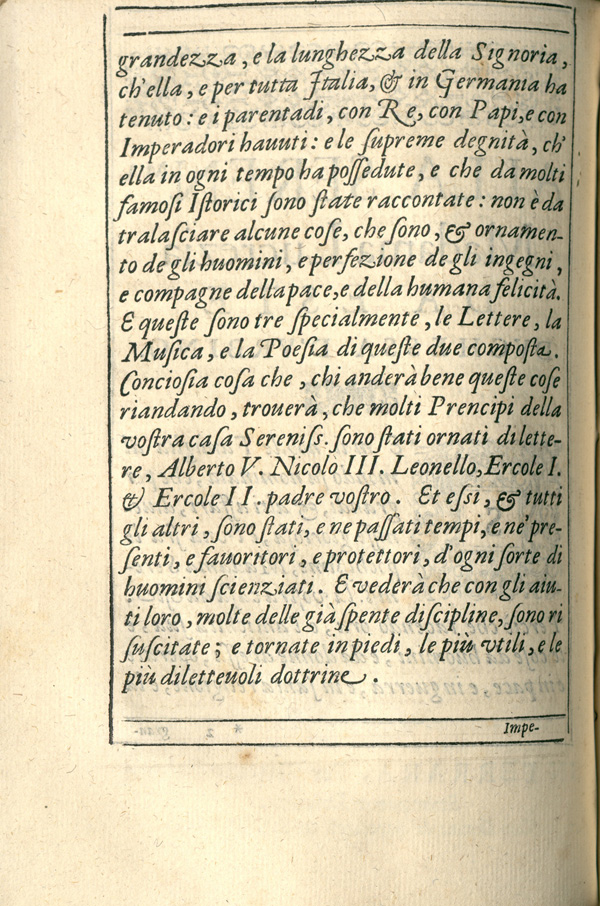 grandezza, e la lunghezza della Signoria,
ch'ella, e per tutta Italia, & in Germania ha
tenuto: e i parentadi, con Re, con Papi, e con
Imperadori hauuti: e le ſupreme degnità, ch'
ella in ogni tempo ha poſſedute, e che da molti
famoſi Iſtorici ſono ſtate raccontate: non è da
tralaſciare alcune coſe, che ſono, & ornamen-
to de gli huomini, e perfezione de gli ingegni,
e compagne della pace, e della humana felicità.
E queſte ſono tre ſpecialmente, le Lettere, la
Muſica, e la Poeſia di queſte due compoſta.
Concioſia coſa che, chi anderà bene queſte coſe
riandando, trouerà, che molti Prencipi della
voſtra caſa Sereniſſ. ſono ſtati ornati di lette-
re, Alberto V. Nicolo III. Leonello, Ercole I.
& Ercole II. padre voſtro. Et eſſi, & tutti
gli altri, ſono ſtati, e ne paſſati tempi, e ne' pre-
ſenti, e fauoritori, e protettori, d'ogni ſorte di
huomini ſcienziati. E vederà che con gli aiu-
ti loro, molte delle già ſpente diſcipline, ſono ri
ſuſcitate; e tornate in piedi, le più vtili, e le
più diletteuoli dottrine.
Impe-